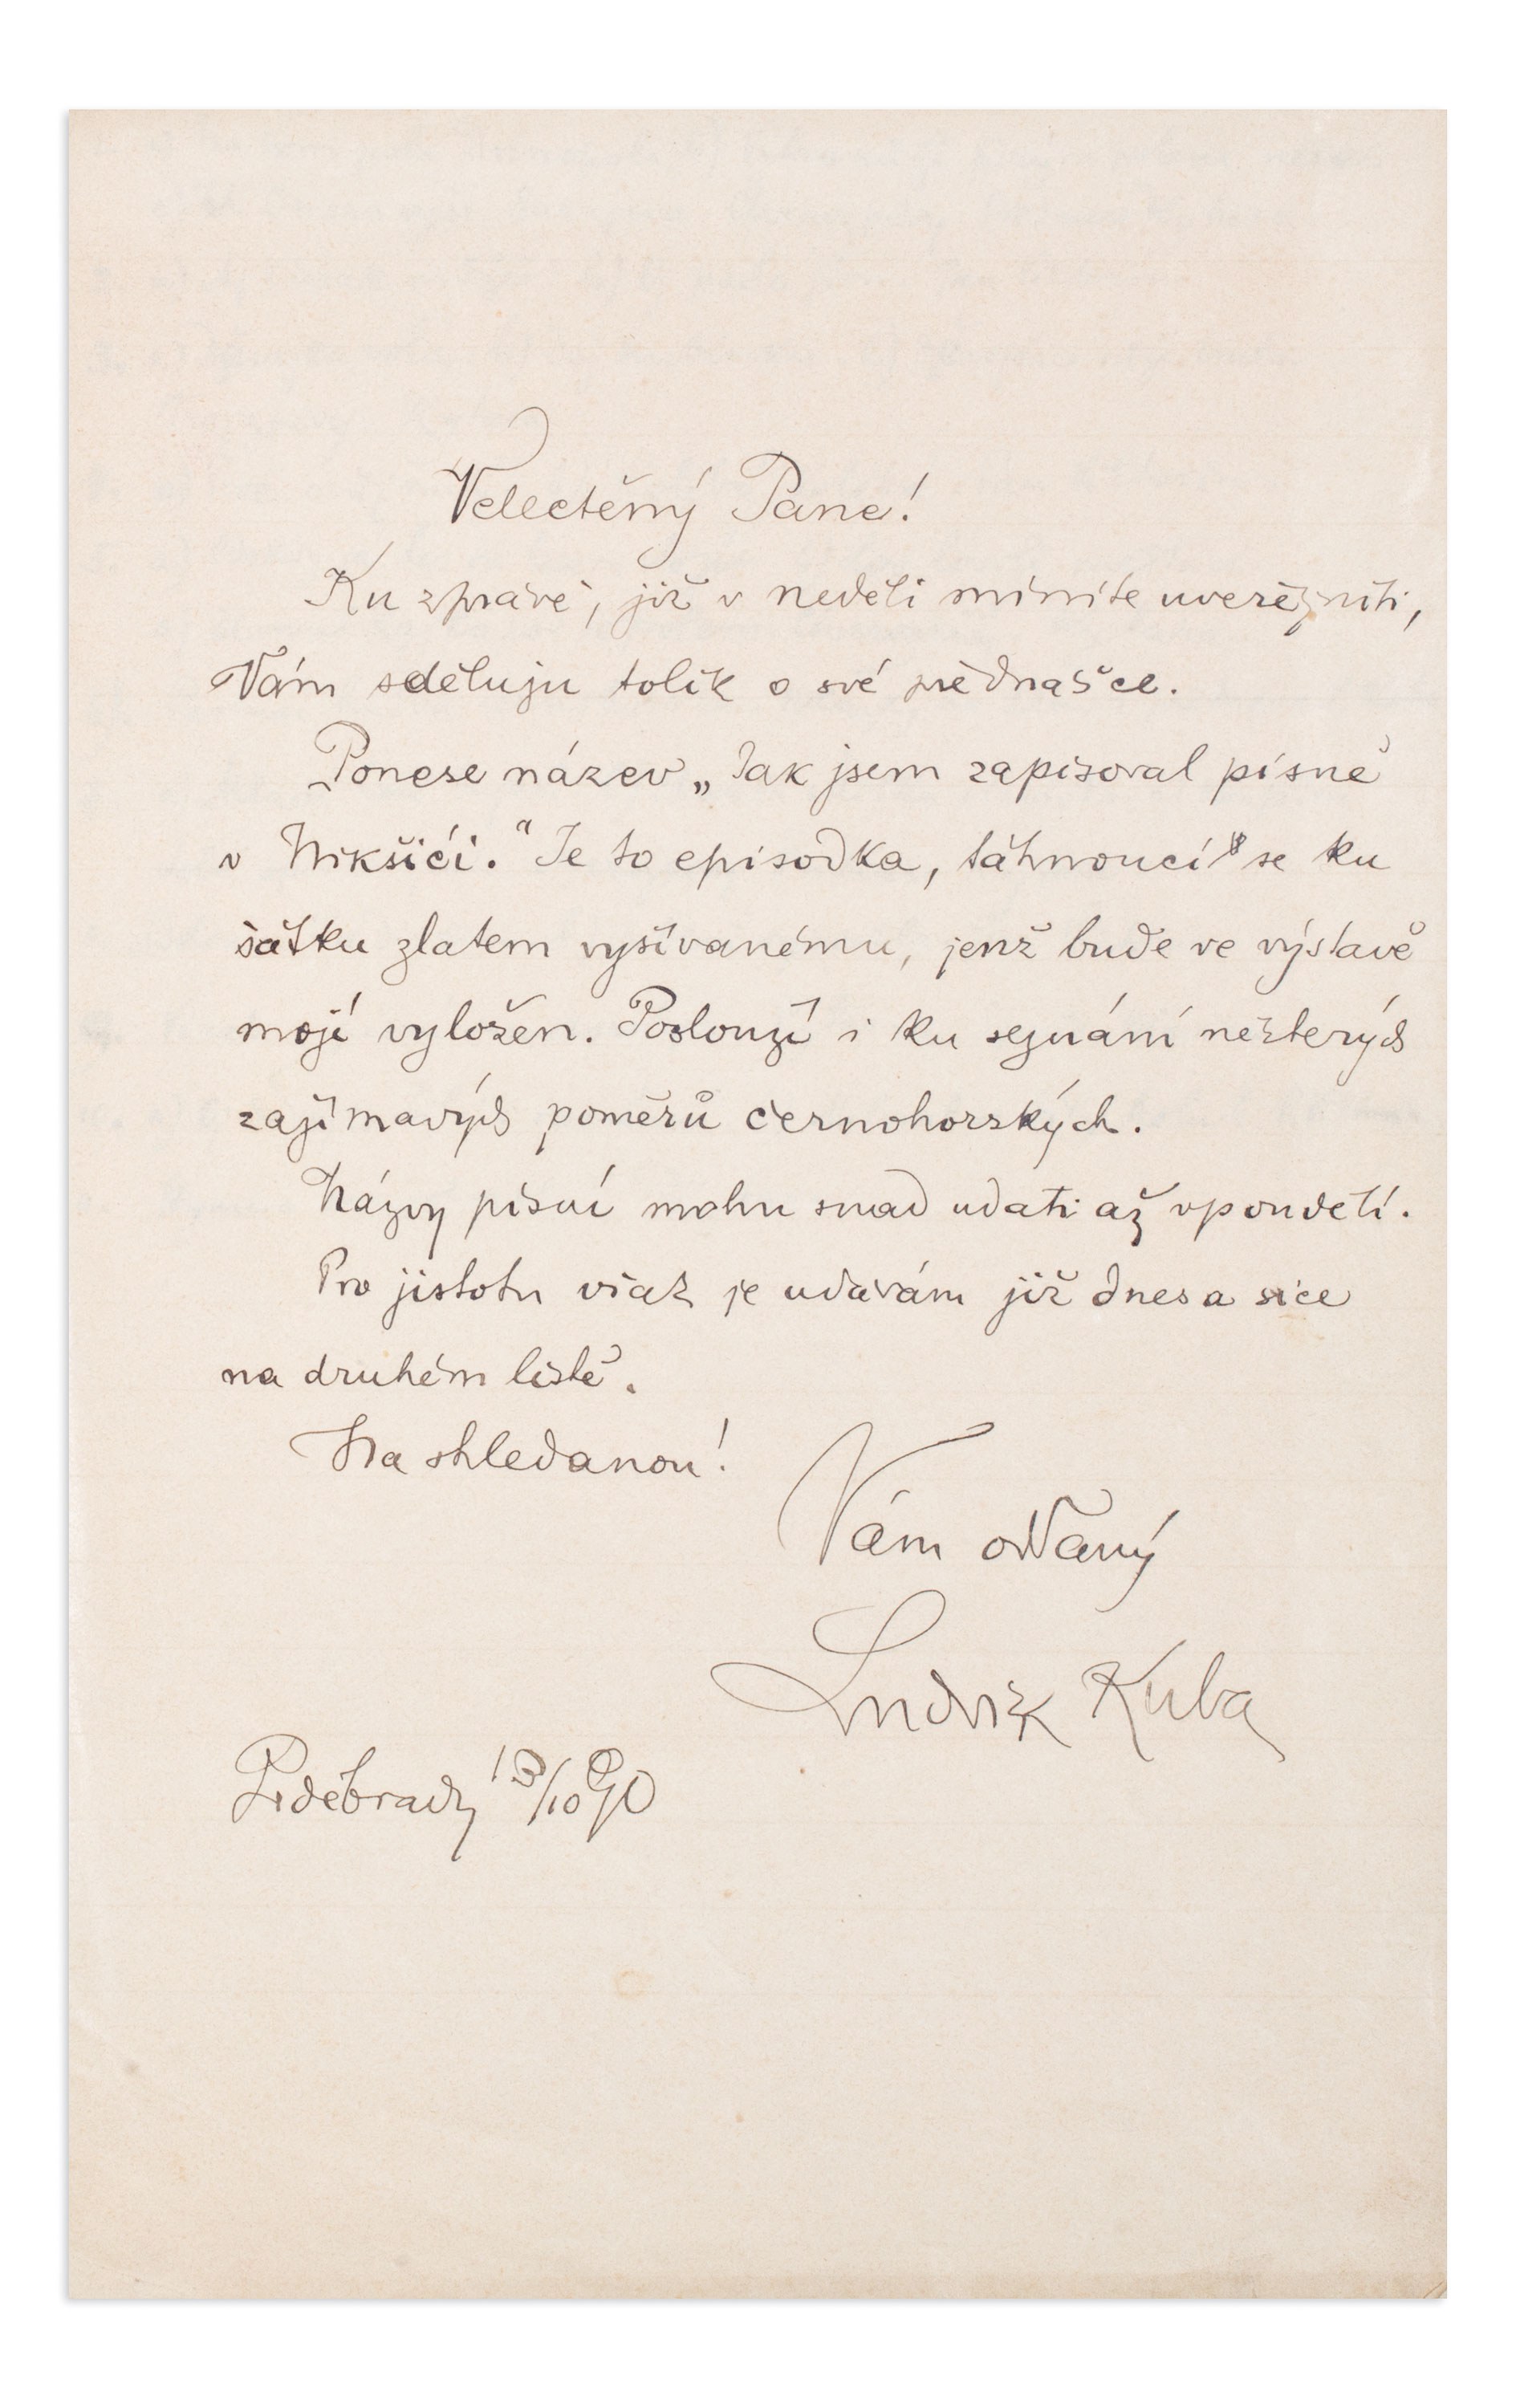 Velectěný Pane!
Ku zprávě, již v neděli míníte uveřejniti,
Vám sděluju tolik o své přednášce.
Ponese název „Jak jsem zapisoval písně
v Nikšići.“ Je to episodka, táhnoucí se ku
šátku zlatem vyšívanému, jenž bude ve výstavě
mojí vyložen. Poslouží i ku seznání některých
zajímavých poměrů černohorských.
Názvy písní mohu snad udati až v pondělí.
Pro jistotu však je udávám již dnes a sice
na druhém listě.
Na shledanou!
Vám oddaný
Ludvík Kuba
Poděbrady 13/10 90